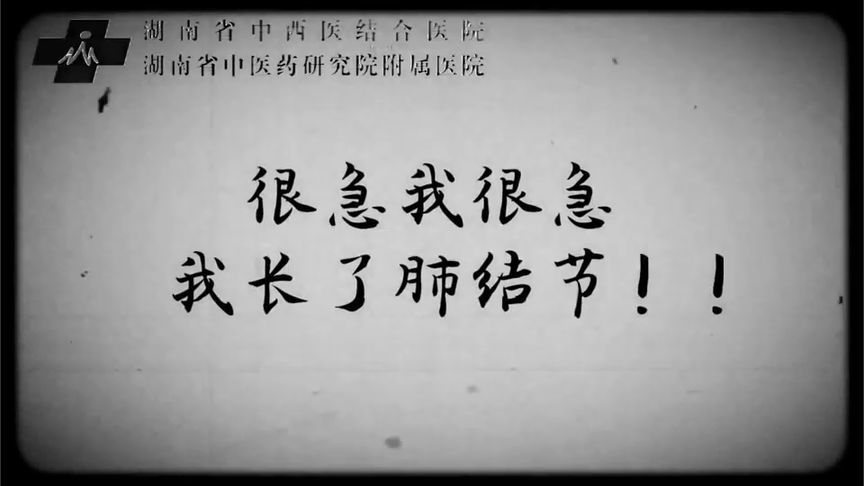 湖南省中西医结合医院
湖南省中医药研究院附属医院
很急我很急
我长了肺结节！！